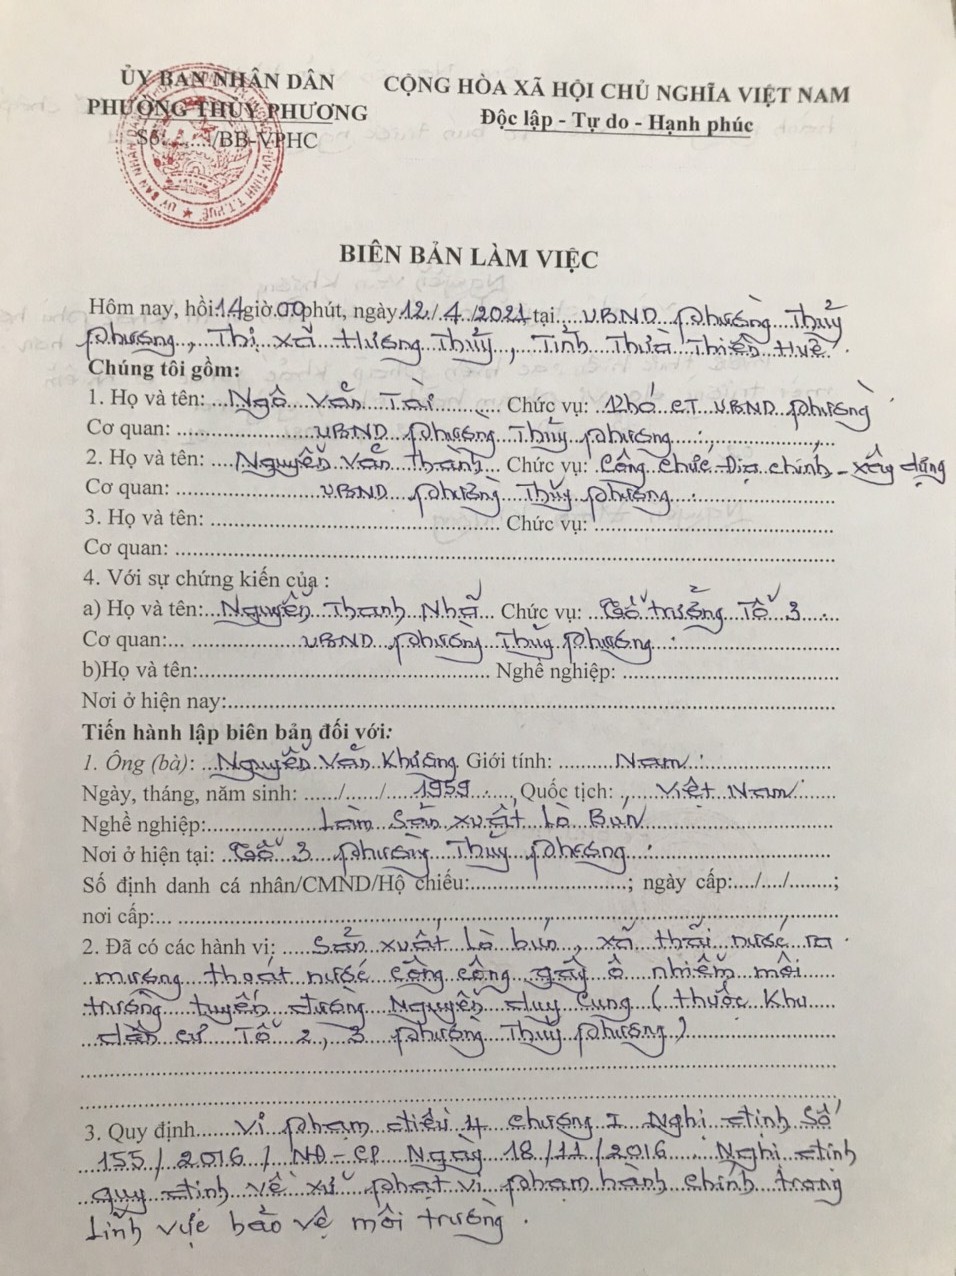 ỦY BAN NHÂN DÂN
PHƯỜNG THỦY PHƯƠNG
Số:......../BB-VPHC
CỘNG HÒA XÃ HỘI CHỦ NGHĨA VIỆT NAM
Độc lập - Tự do - Hạnh phúc
BIÊN BẢN LÀM VIỆC
Hôm nay, hồi 14 giờ 00 phút, ngày 12 / 4 / 2021 tại U.B.N.D phường Thủy
phương, Thị xã Hương Thủy, Tỉnh Thừa Thiên Huế.
Chúng tôi gồm:
1. Họ và tên: Ngô Văn Tài Chức vụ: Phó CT U.B.N.D phường
Cơ quan: U.B.N.D phường Thủy phương
2. Họ và tên: Nguyễn Văn Thành Chức vụ: Công chức Địa chính - xây dựng
Cơ quan: U.B.N.D phường Thủy phương
3. Họ và tên: Chức vụ:
Cơ quan:
4. Với sự chứng kiến của :
a) Họ và tên: Nguyễn Thanh Nhã Chức vụ: Tổ trưởng Tổ 3
Cơ quan: U.B.N.D phường Thủy phương
b)Họ và tên: Nghề nghiệp:
Nơi ở hiện nay:
Tiến hành lập biên bản đối với:
1. Ông (bà): Nguyễn Văn Khương Giới tính: Nam
Ngày, tháng, năm sinh: ....../....../ 1959, Quốc tịch: Việt Nam
Nghề nghiệp: Làm Sản xuất Lò Bún
Nơi ở hiện tại: Tổ 3 phường Thủy phương
Số định danh cá nhân/CMND/Hộ chiếu:..............; ngày cấp:..../..../........;
nơi cấp:...
2. Đã có các hành vi: Sản xuất Lò bún, xã thãi nước ra
mương thoát nước công cộng gây ô nhiễm môi
trường tuyến đường Nguyễn duy Cung ( thuộc Khu
dân cư Tổ 2, 3 phường Thủy phương )
3. Quy định Vi phạm điều 4 chương I Nghị định Số
155 / 2016 / NĐ - CP Ngày 18/11/2016. Nghị định
quy định về xử phạt vi phạm hành chính trong
Lĩnh vực bảo vệ môi trường.